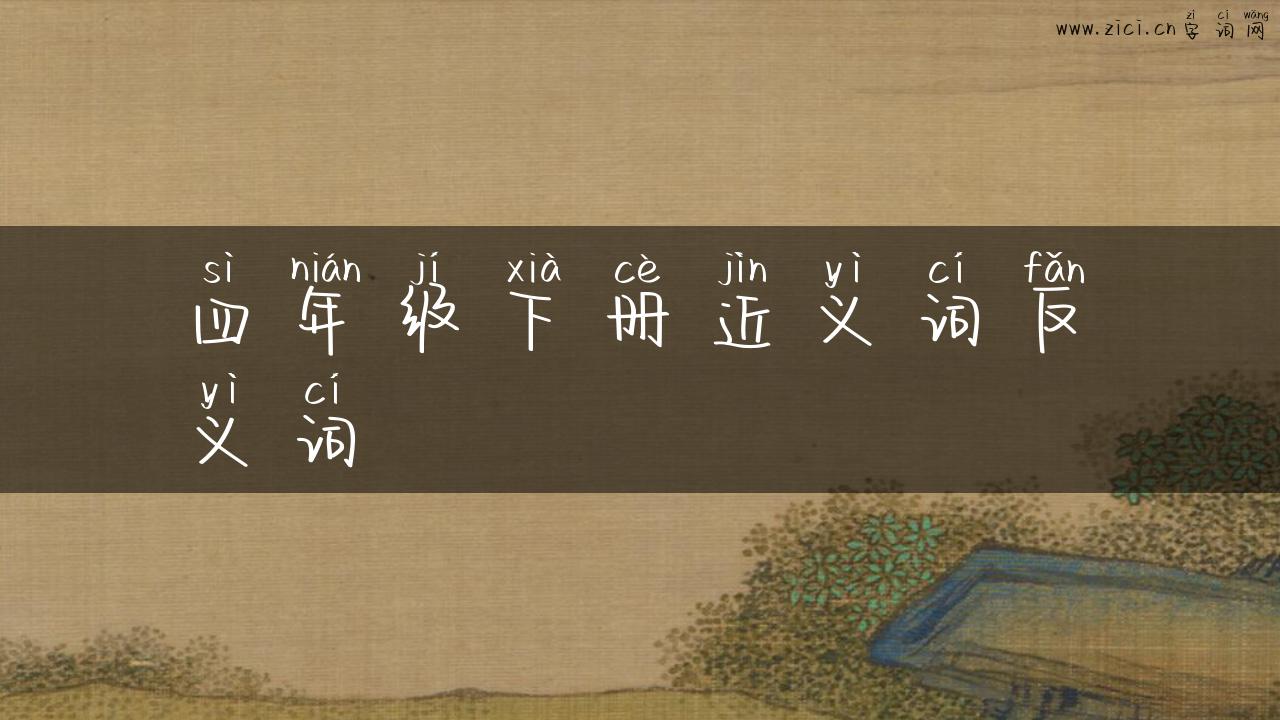 zì cí wǎng
www.zici.cn 字 词 网
sì nián jí xià cè jìn yì cí fǎn
四 年 级 下 册 近 义 词 反
yì cí
义 词